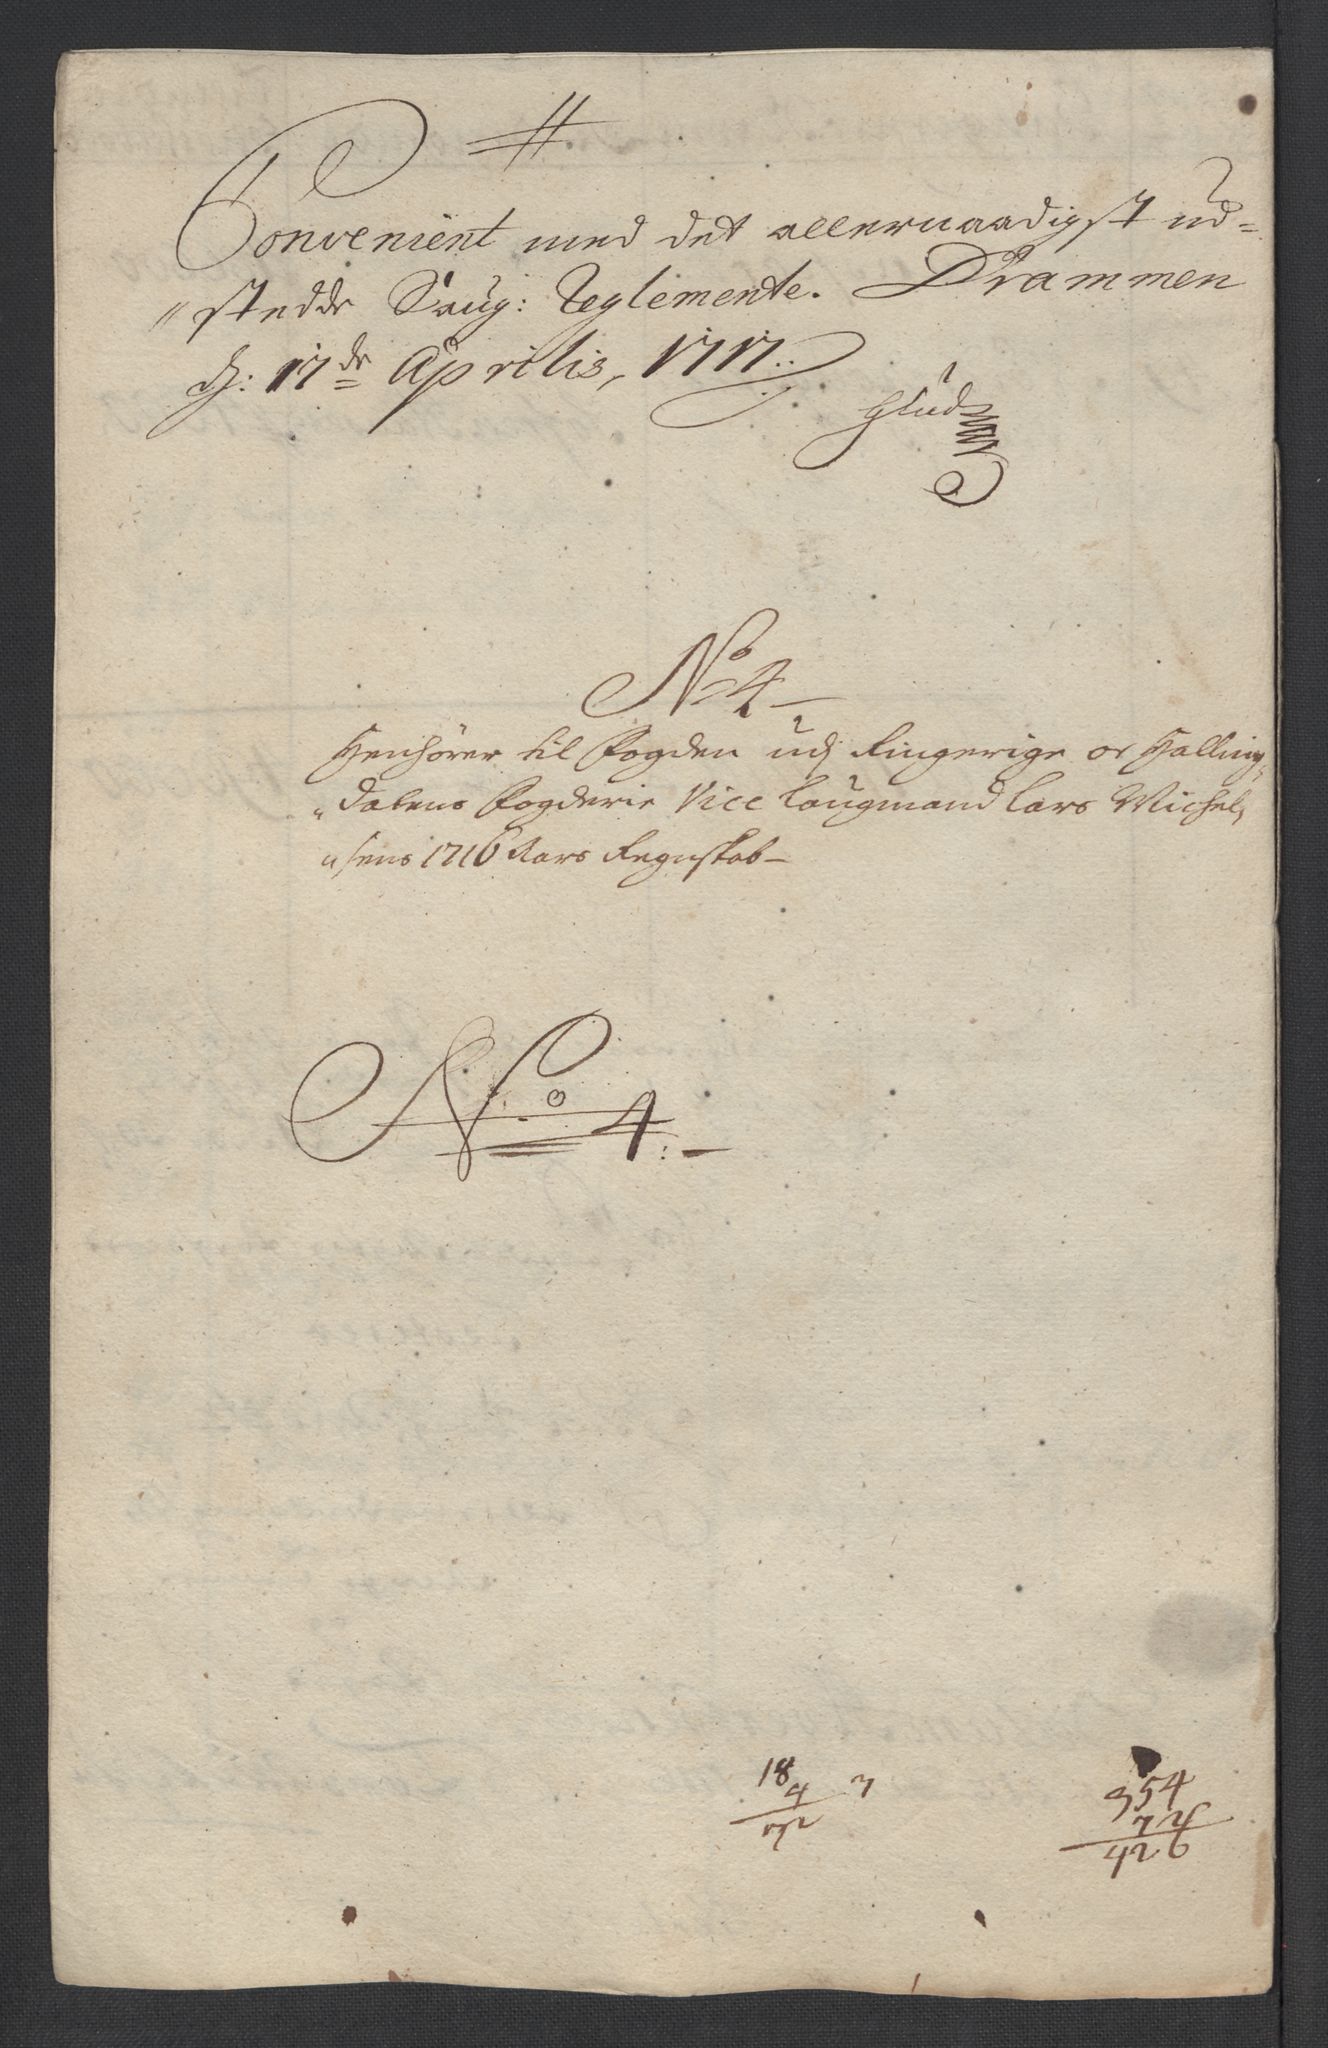 Convenient med det allernaadigst ud=
"stedde Saug: Reglemente. Drammen
d: 17de Aprilis, 1717.
No 4
Henhører til Fogden udj Ringerige oc Halling,
"dalens Fogderie Vice Laugmand Lars Michel,
"sens 1716 Aars Regnskab
No 4:
18
4
72
7
354
72
426